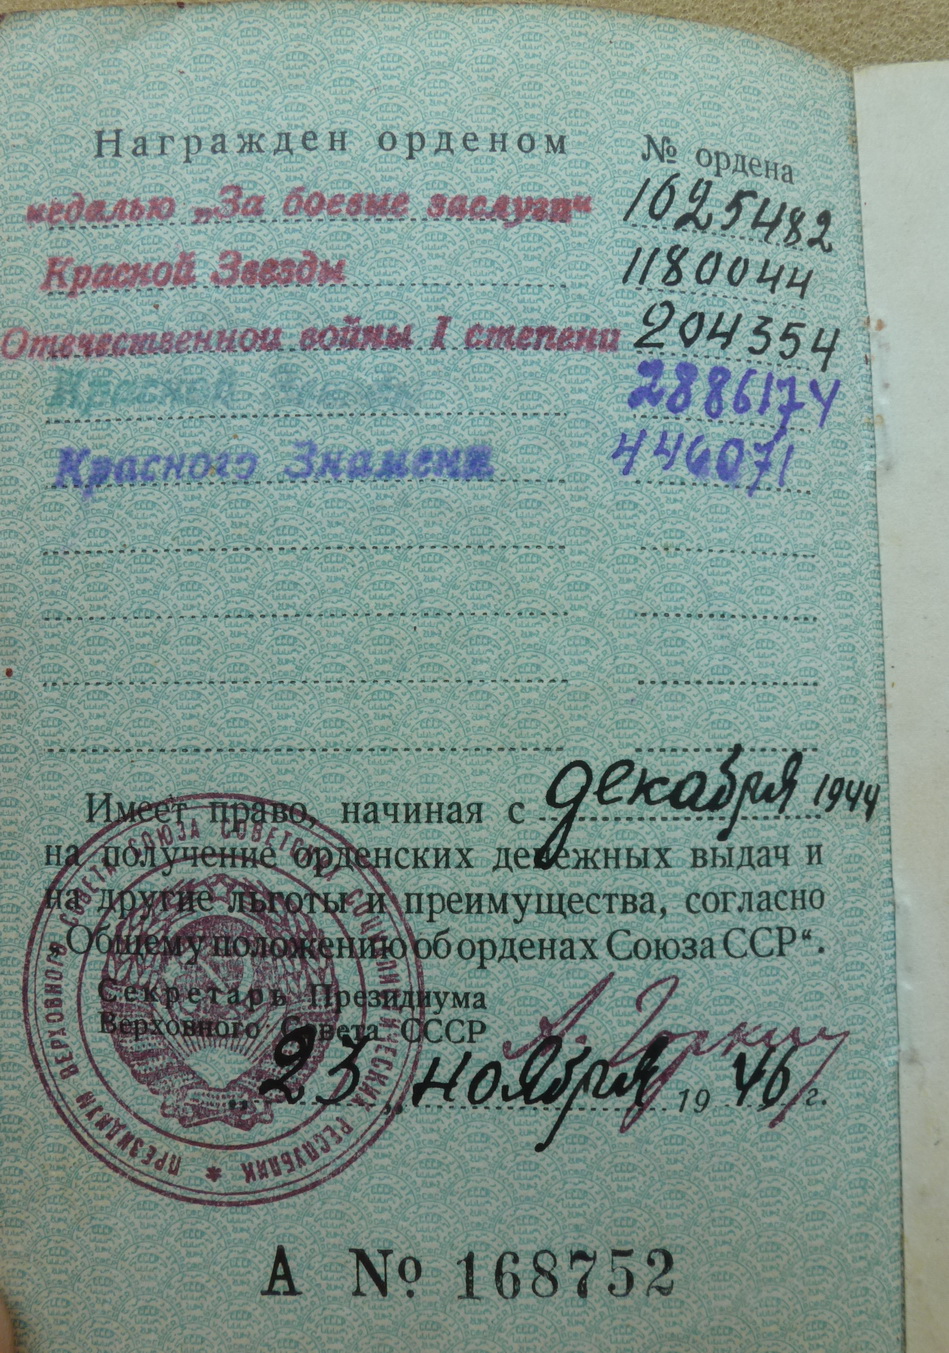 Награжден орденом № ордена
медалью „За боевые заслуги“ 1025482
Красной Звезды 1180044
Отечественной войны I степени 204354
Красной Звезды 2886174
Красного Знамени 446071
Имеет право, начиная с декабря 1944
на получение орденских денежных выдач и
на другие льготы и преимущества, согласно
„Общему положению об орденах Союза ССР“.
Секретарь Президиума
Верховного Совета СССР А. Горкин
„23„ ноября 1946 г.
ПРЕЗИДИУМ ВЕРХОВНОГО СОВЕТА СОЮЗА СОВЕТСКИХ СОЦИАЛИСТИЧЕСКИХ РЕСПУБЛИК
А № 168752